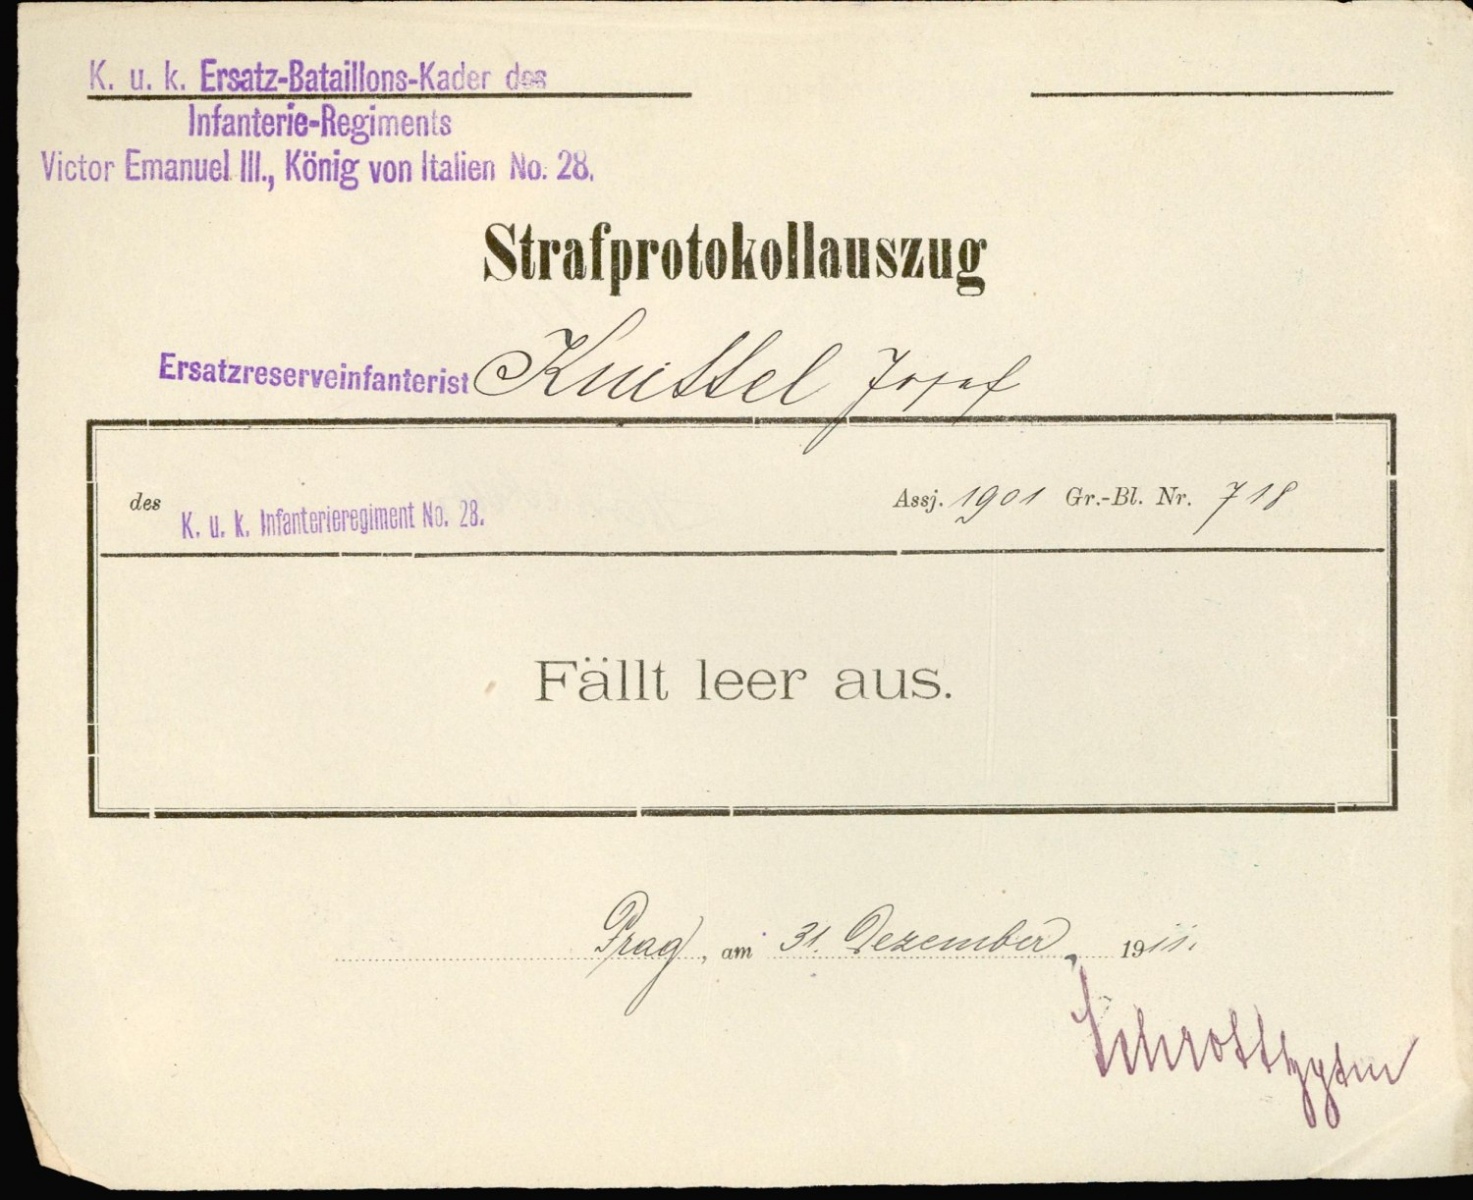 K. u. k. Ersatz-Bataillons-Kader des
Infanterie-Regiments
Victor Emanuel III., König von Italien No. 28.
Strafprotokollauszug
Ersatzreserveinfanterist Knittel Josef
des K. u. k. Infanterieregiment No. 28. Assj. 1901 Gr.-Bl. Nr. 718
Fällt leer aus.
Prag, am 31. Dezember 1911.